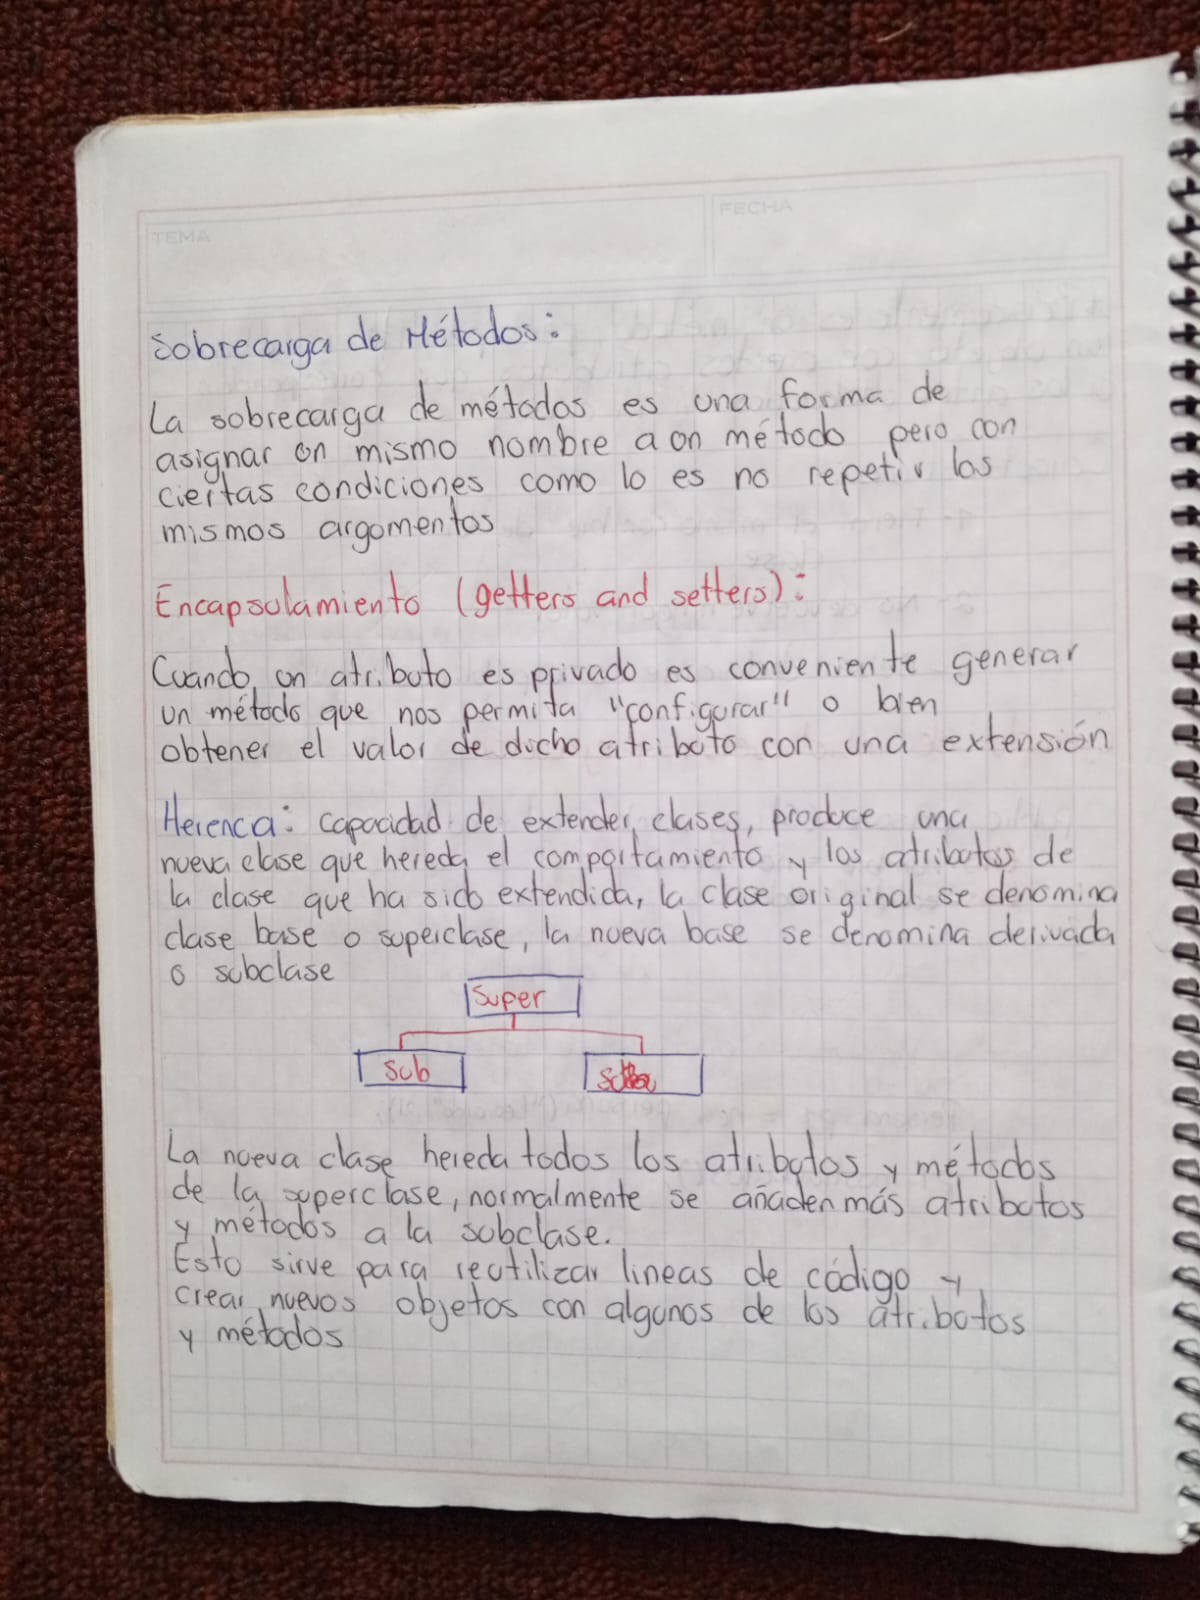 TEMA
FECHA
Sobrecarga de Métodos:
La sobrecarga de métodos es una forma de
asignar un mismo nombre a un método pero con
ciertas condiciones como lo es no repetir los
mismos argumentos
Encapsulamiento (getters and setters):
Cuando un atributo es privado es conveniente generar
un método que nos permita "configurar" o bien
obtener el valor de dicho atributo con una extensión
Herenca: capacidad de extender clases, produce una
nueva clase que hereda el comportamiento y los atributos de
la clase que ha sido extendida, la clase original se denomina
clase base o superclase, la nueva base se denomina derivada
o subclase
Super
Sub
La nueva clase hereda todos los atributos y métodos
de la superclase, normalmente se añaden más atributos
y métodos a la subclase.
Esto sirve para reutilizar lineas de código y
crear nuevos objetos con algunos de los atributos
y métodos